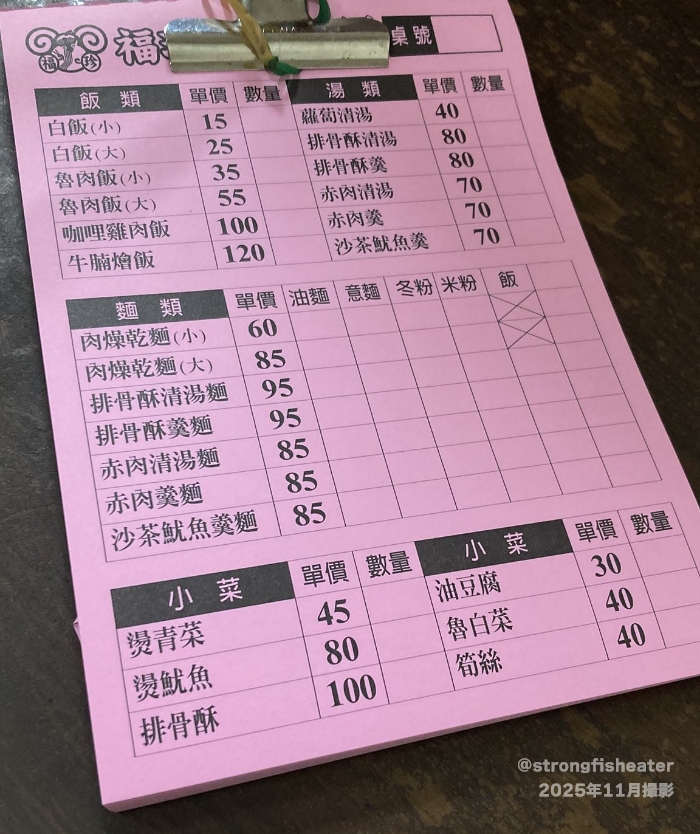 福珍
福
桌號
飯類 單價 數量 湯類 單價 數量
白飯(小) 15 蘿蔔清湯 40
白飯(大) 25 排骨酥清湯 80
魯肉飯(小) 35 排骨酥羹 80
魯肉飯(大) 55 赤肉清湯 70
咖哩雞肉飯 100 赤肉羹 70
牛腩燴飯 120 沙茶魷魚羹 70
麵類 單價 油麵 意麵 冬粉 米粉 飯
肉燥乾麵(小) 60
肉燥乾麵(大) 85
排骨酥清湯麵 95
排骨酥羹麵 95
赤肉清湯麵 85
赤肉羹麵 85
沙茶魷魚羹麵 85
小菜 單價 數量 小菜 單價 數量
燙青菜 45 油豆腐 30
燙魷魚 80 魯白菜 40
排骨酥 100 筍絲 40
@strongfisheater
2025年11月撮影